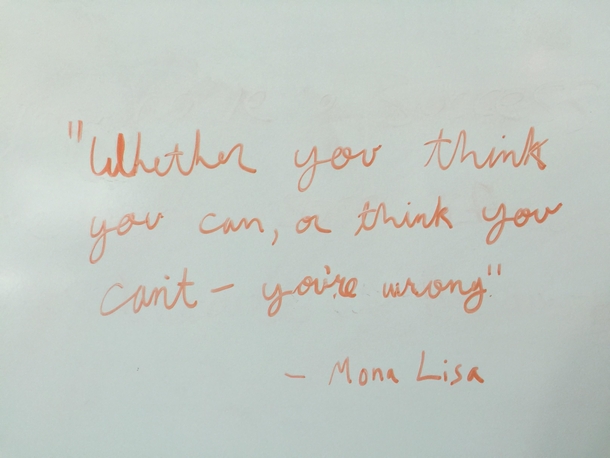 "Whether you think
you can, or think you
can't – you're wrong"
– Mona Lisa